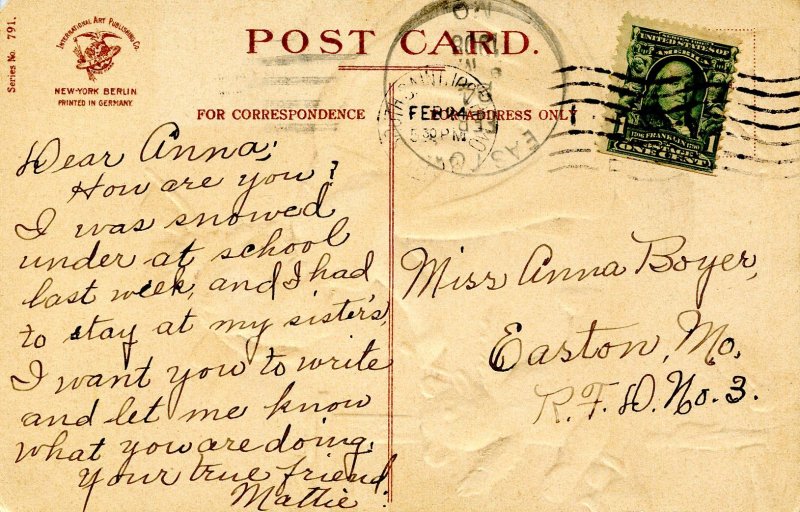 Series No. 791.
INTERNATIONAL ART PUBLISHING CO.
NEW-YORK BERLIN
PRINTED IN GERMANY
POST CARD.
FOR CORRESPONDENCE
FOR ADDRESS ONLY
FEB 24
5 30 PM
EASTON
MO
UNITED STATES OF AMERICA
FRANKLIN
1
ONE CENT
Dear Anna;
How are you?
I was snowed
under at school
last week, and I had
to stay at my sister's,
I want you to write
and let me know
what you are doing,
Your true friend,
Mattie.
Miss Anna Boyer,
Easton, Mo,
R.F.D. No. 3.